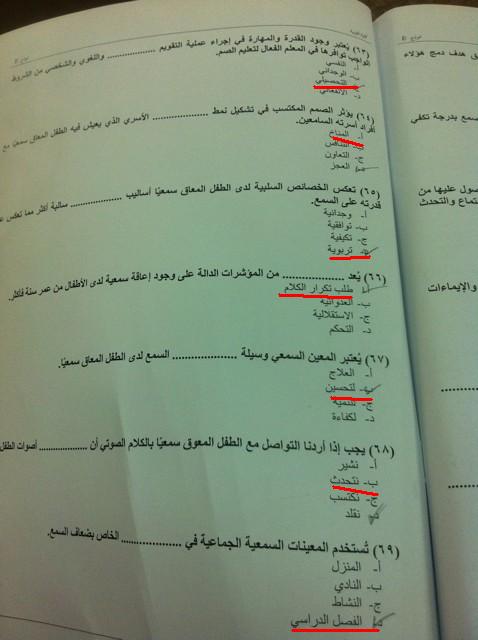 (٦٣) يُعتبر وجود القدرة والمهارة في إجراء عملية التقويم .................. واللغوي والشخصي من الشروط
الواجب توافرها في المعلم الفعال لتعليم الصم.
أ- النفسي
ب- الوجداني
ج- التحصيلي
د- الانفعالي
(٦٤) يؤثر الصمم المكتسب في تشكيل نمط .................. الأسري الذي يعيش فيه الطفل المعاق سمعيًا مع
أفراد أسرته السامعين.
أ- المناخ
ب- التنافس
ج- التعاون
د- العجز
(٦٥) تعكس الخصائص السلبية لدى الطفل المعاق سمعيًا أساليب .................. سالبة أكثر مما تعكس
قدرته على السمع.
أ- وجدانية
ب- توافقية
ج- تكيفية
د- تربوية
(٦٦) يُعد .................. من المؤشرات الدالة على وجود إعاقة سمعية لدى الأطفال من عمر سنة فأكثر.
أ- طلب تكرار الكلام
ب- العدوانية
ج- الاستقلالية
د- التحكم
(٦٧) يُعتبر المعين السمعي وسيلة .................. السمع لدى الطفل المعاق سمعيًا.
أ- العلاج
ب- لتحسين
ج- لتنمية
د- لكفاءة
(٦٨) يجب إذا أردنا التواصل مع الطفل المعوق سمعيًا بالكلام الصوتي أن .................. أصوات الطفل
أ- نشير
ب- نتحدث
ج- نكتسب
د- نقلد
(٦٩) تُستخدم المعينات السمعية الجماعية في .................. الخاص بضعاف السمع.
أ- المنزل
ب- النادي
ج- النشاط
د- الفصل الدراسي
نموذج
ق هدف دمج هؤلاء
سمع بدرجة تكفي
صول عليها من
تماع والتحدث
والإيماءات